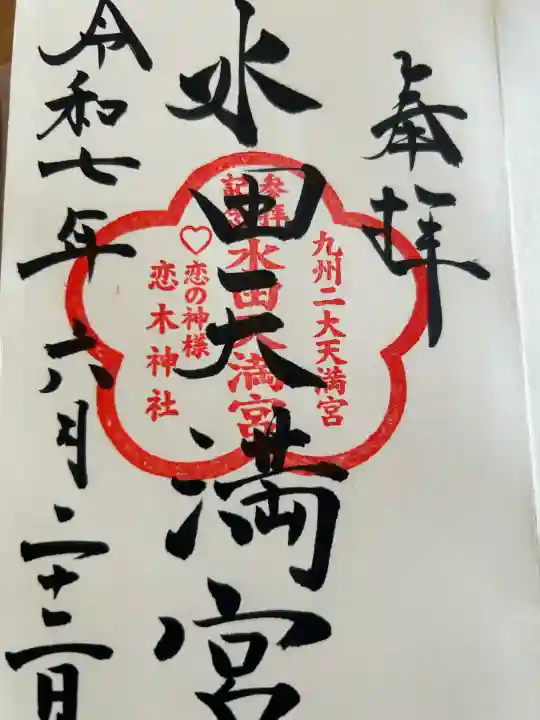 奉拝
水田天満宮
令和七年六月二十二日
九州二大天満宮
参拝
記念
水田天満宮
♡恋の神様
恋木神社